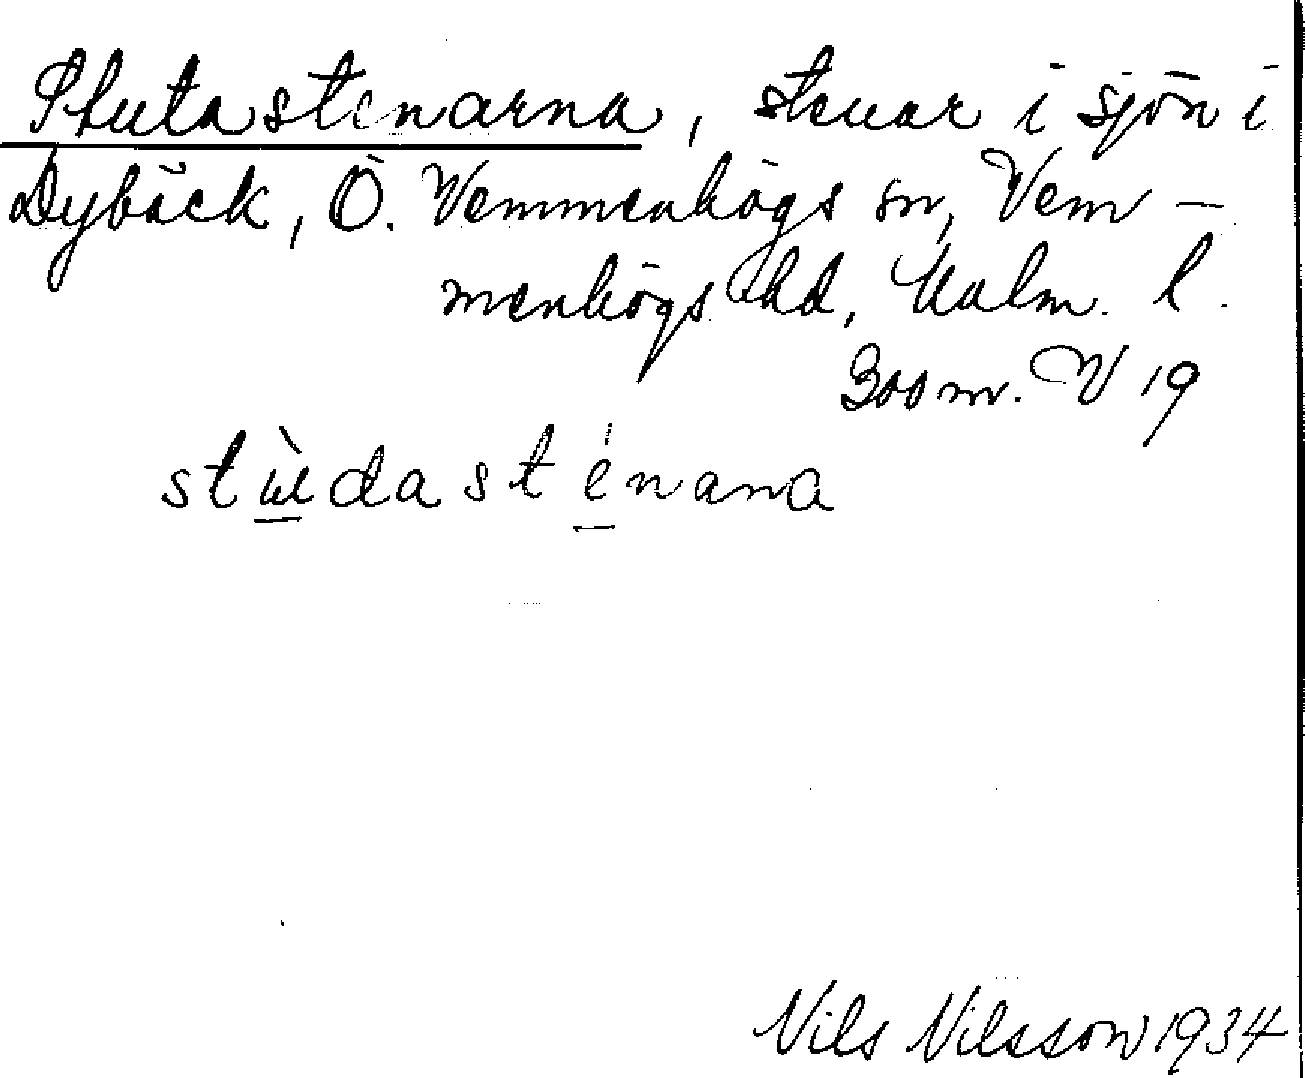 Stutastenarna, stenar i sjön i
Dybäck, Ö. Vemmenhögs sn, Vem-
menhögs hd, Malm. l.
Boom. V 19
stùdasténana
Nils Nilsson 1934